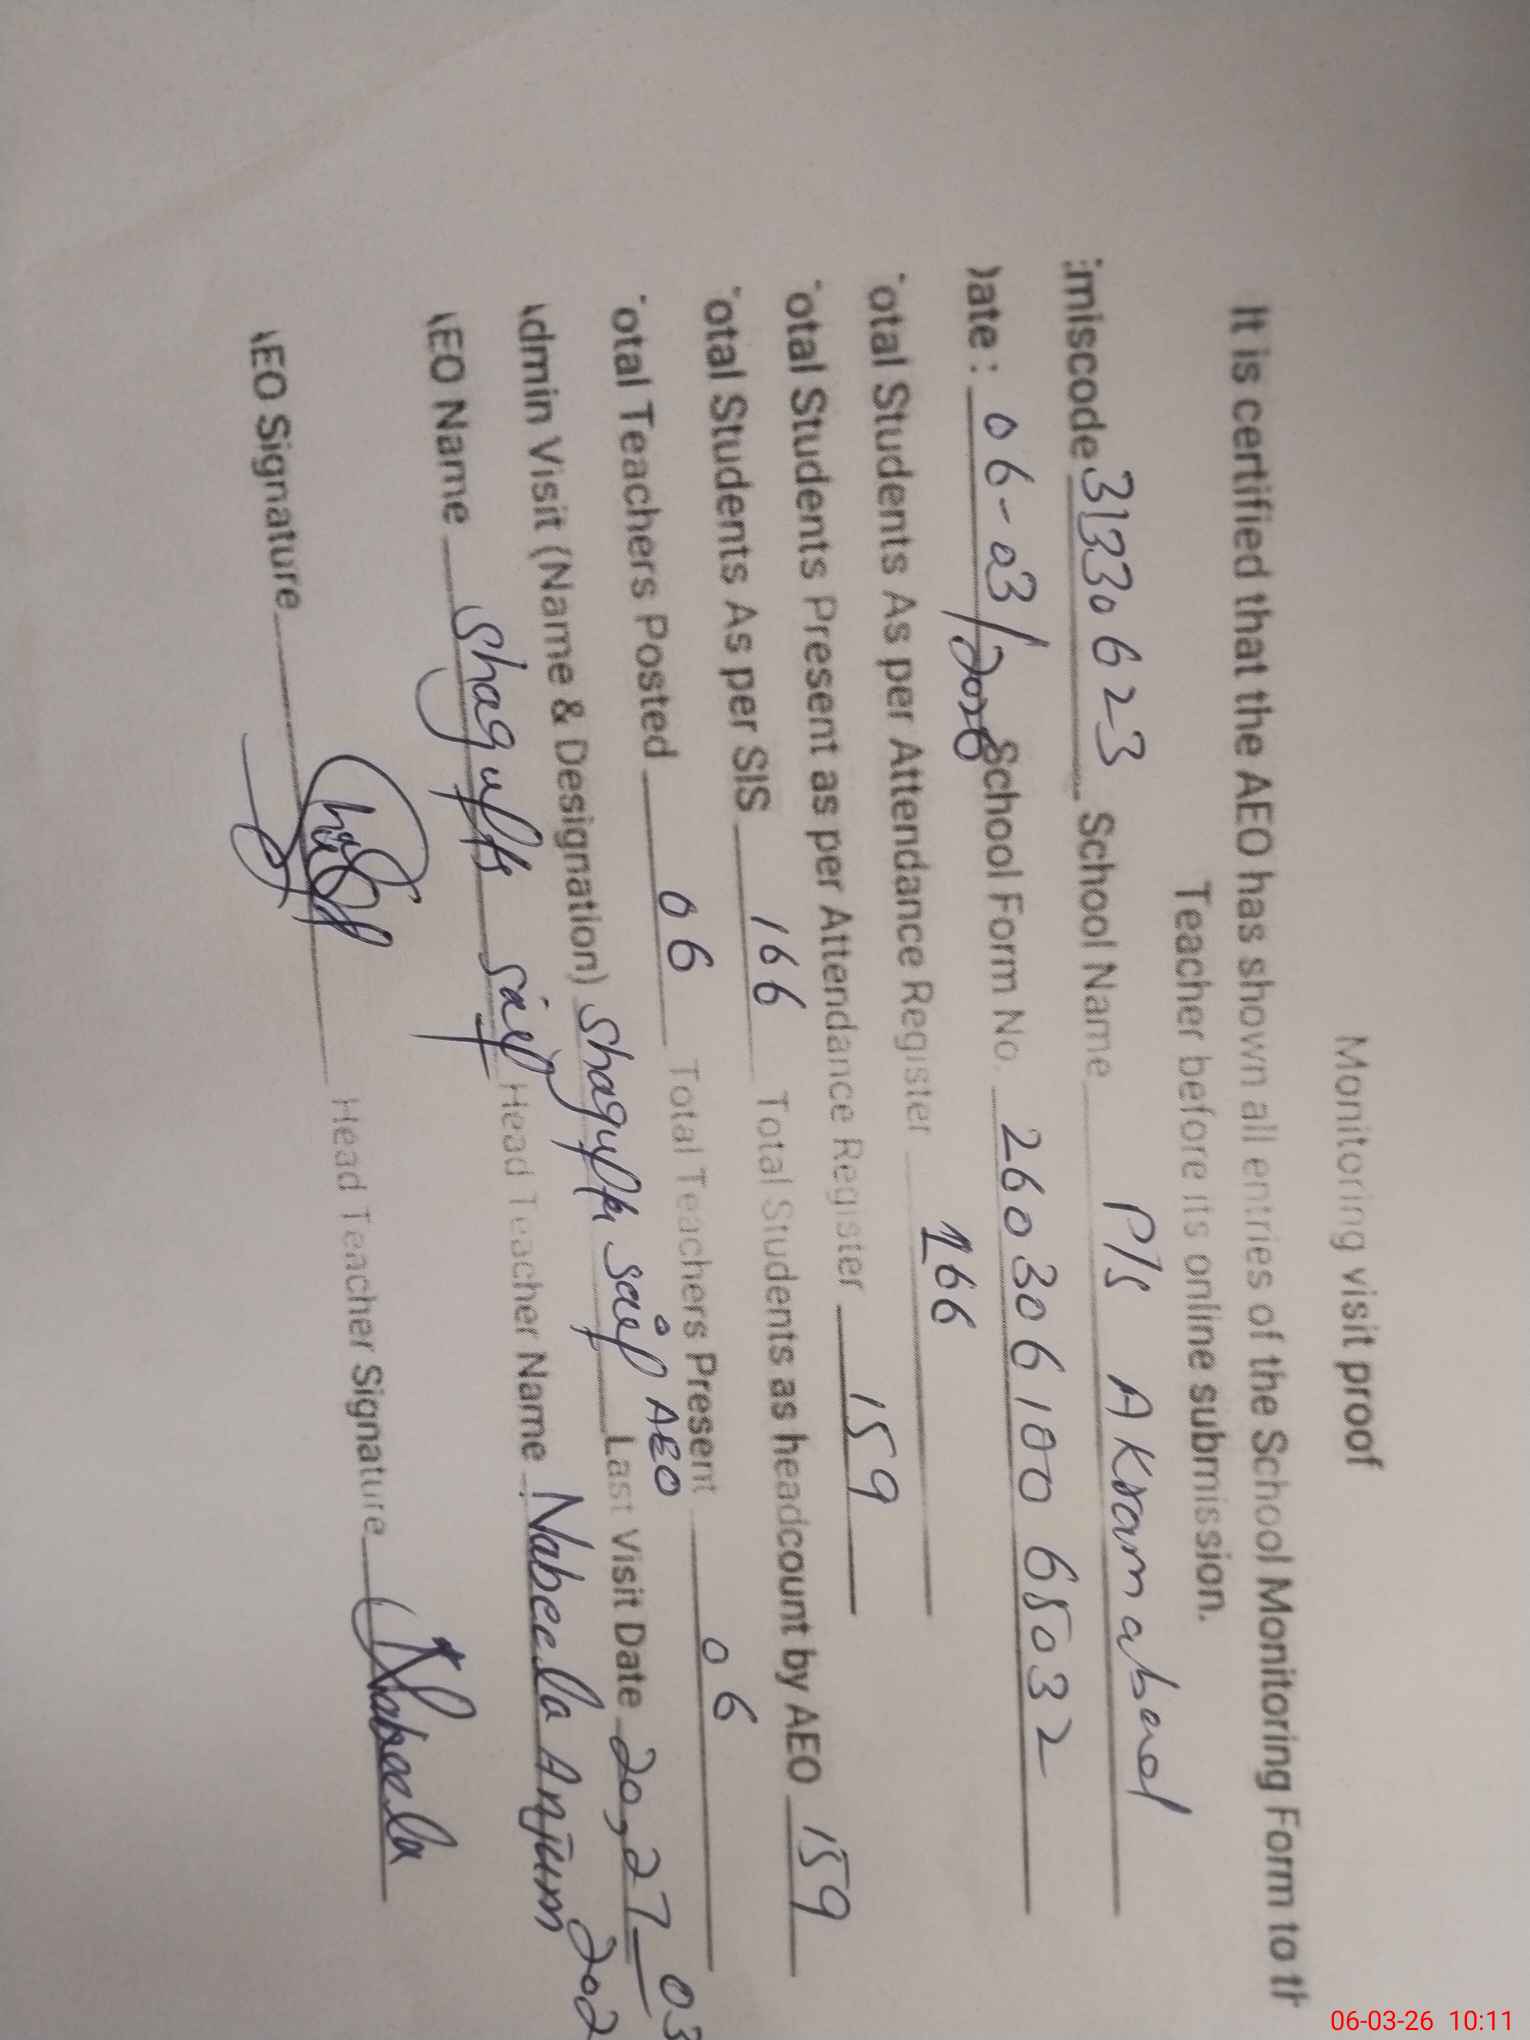 Monitoring visit proof
It is certified that the AEO has shown all entries of the School Monitoring Form to th
Teacher before its online submission.
:miscode 31330623 School Name P/s Akramabad
)ate : 06-03/2026 School Form No. 2603061006 5032
otal Students As per Attendance Register 166
otal Students Present as per Attendance Register 159
otal Students As per SIS 166 Total Students as headcount by AEO 159
otal Teachers Posted 06 Total Teachers Present 06
dmin Visit (Name & Designation) Shagufta saif AEO Last Visit Date 20,27 03
202
EO Name Shagufta saif Head Teacher Name Nabeela Anjum
EO Signature Head Teacher Signature Nabeela
06-03-26 10:11